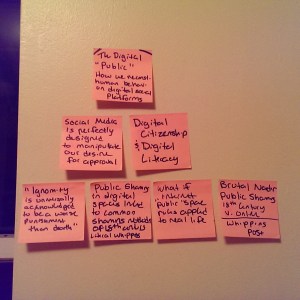 The Digital
"Public"
How we
human behav-
on digital social
Platforms
Social Media
is perfectly
designed
to manipulate
our desire
for approval
Digital
Citizenship
& Digital
Literacy
"Ignominy
is universally
acknowledged
to be a worse
punishment
than death"
Public Shaming
in digital
spaces
to common
shaming
of
literal
what if
internet
"public" space
rules applied
to real life
Brutal
Public Shaming
Century
Whipping
Post